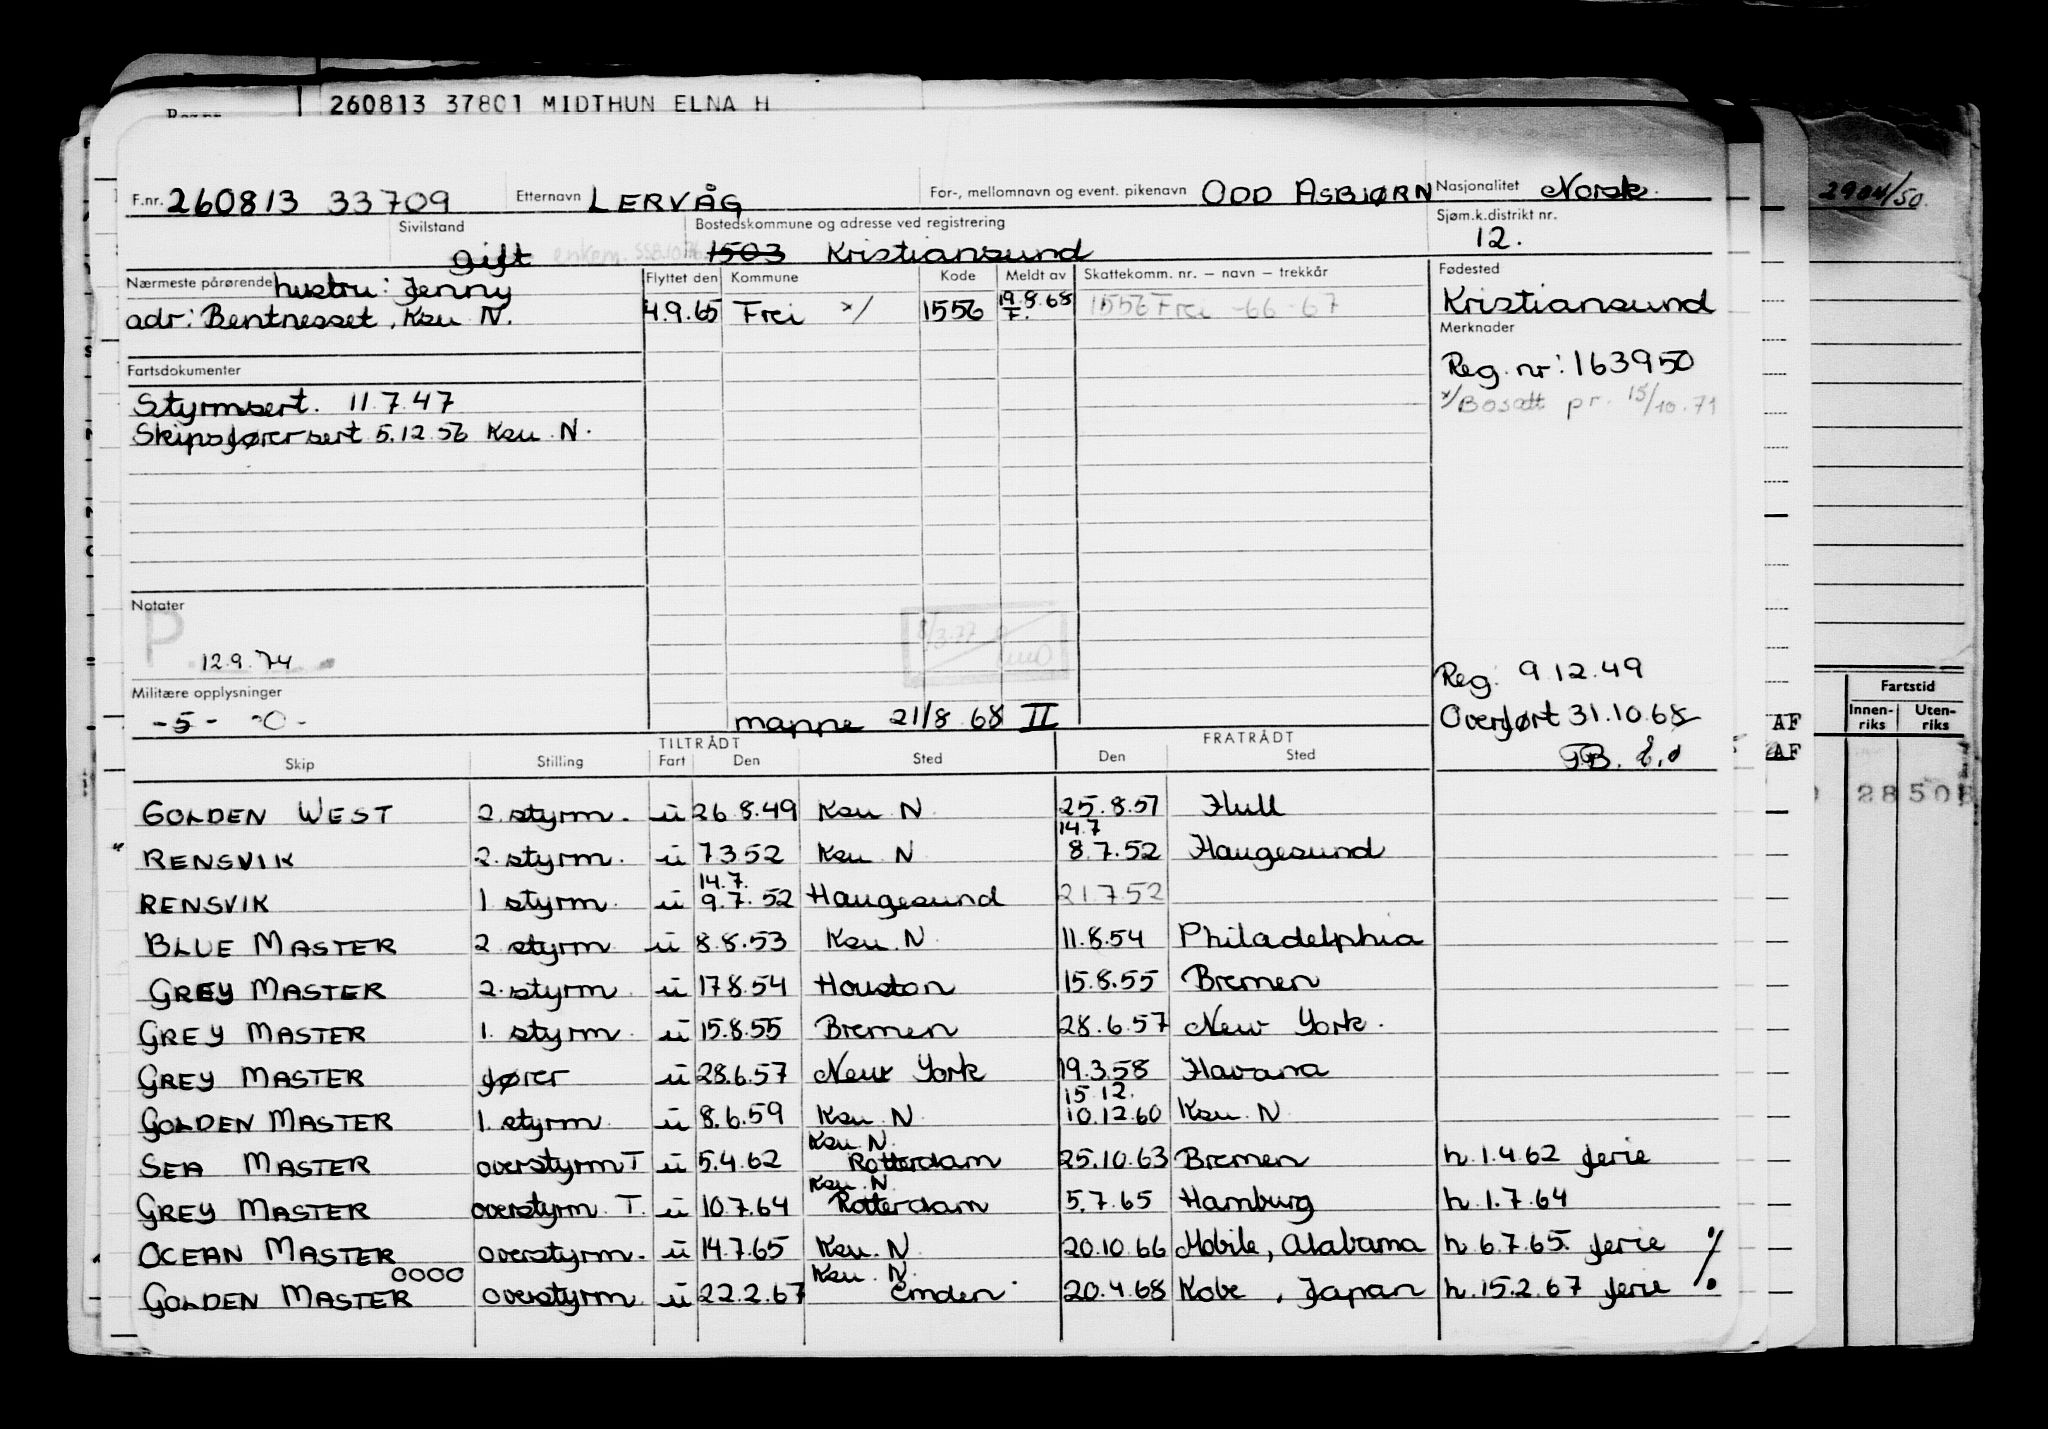 260813 37801 MIDTHUN ELNA H
F.nr. 260813 33709 Etternavn LERVÅG For-, mellomnavn og event. pikenavn ODD ASBJØRN Nasjonalitet Norsk.
2904/50
Sivilstand Bostedskommune og adresse ved registrering Sjøm.k.distrikt nr.
gift enkem. 1503 Kristiansund 12.
Nærmeste pårørende hustru: Jenny Flyttet den Kommune Kode Meldt av Skattekomm. nr. – navn – trekkår Fødested
adr: Bentnesset, Ksu N. 4.9.65 Frei x/ 1556 19.8.68 F. 1556 Frei -66-67 Kristiansund
Merknader
Fartsdokumenter Reg. nr: 163950
Styrmsert. 11.7.47 x/ Bosatt pr. 15/10.71
Skipsførersert 5.12.56 Ksu. N.
Notater
P. 12.9.74 8/3.77
Reg. 9.12.49
Militære opplysninger
-5- -0- mappe 21/8 68 II Overført 31.10.68
TILTRÅDT FRATRÅDT
Skip Stilling Fart Den Sted Den Sted
Fartstid
Innen-riks Uten-riks
AF
AF
28508
GOLDEN WEST 2. styrm. u 26.8.49 Ksu. N 25.8.51 Hull
RENSVIK 2. styrm. u 7.3.52 Ksu N 14.7 8.7.52 Haugesund
RENSVIK 1. styrm. u 14.7. 9.7.52 Haugesund 21.7.52
BLUE MASTER 2. styrm u 8.8.53 Ksu. N. 11.8.54 Philadelphia
GREY MASTER 2. styrm. u 17.8.54 Houston 15.8.55 Bremen
GREY MASTER 1. styrm. u 15.8.55 Bremen 28.6.57 New York.
GREY MASTER fører u 28.6.57 New York 19.3.58 Havana
GOLDEN MASTER 1. styrm. u 8.6.59 Ksu. N. 15.12. 10.12.60 Ksu. N.
SEA MASTER overstyrm T u 5.4.62 Ksu. N. Rotterdam 25.10.63 Bremen h. 1.4.62 ferie
GREY MASTER overstyrm. T. u 10.7.64 Ksu. N. Rotterdam 5.7.65 Hamburg h. 1.7.64
OCEAN MASTER overstyrm. u 14.7.65 Ksu. N. 20.10.66 Mobile, Alabama h. 6.7.65. ferie
GOLDEN MASTER 0000 overstyrm. u 22.2.67 Ksu. N. Emden 20.4.68 Kobe, Japan h. 15.2.67 ferie